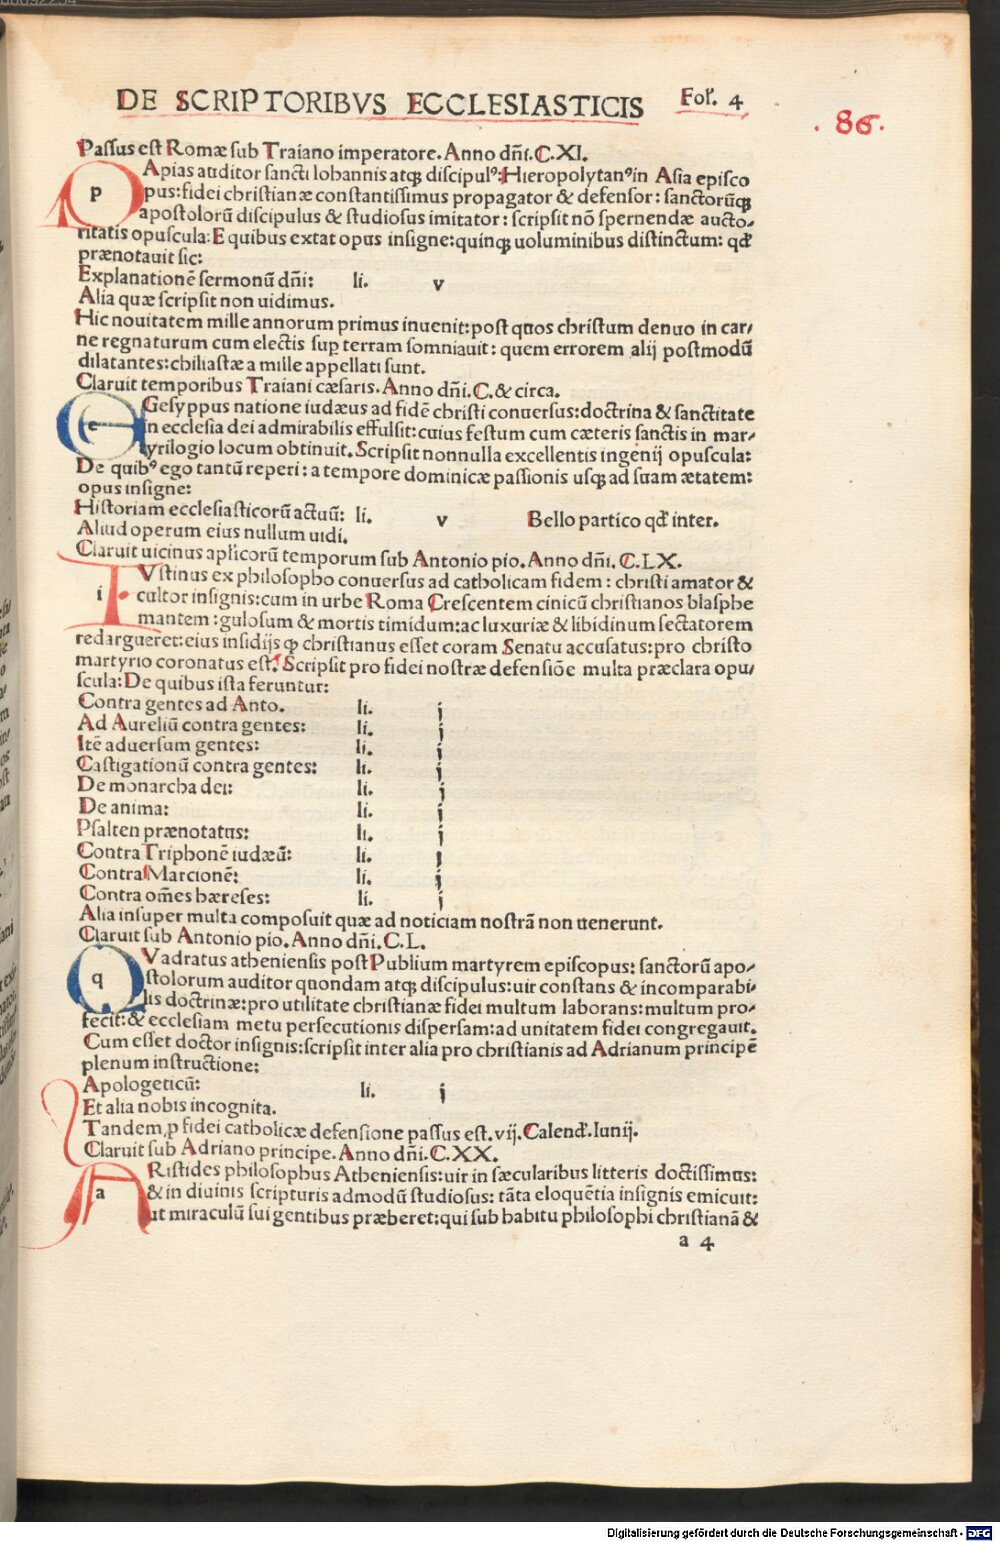 DE SCRIPTORIBVS ECCLESIASTICIS Fol. 4
. 86.
Passus est Romæ sub Traiano imperatore. Anno dñi. C.XI.
p Apias auditor sancti Iohannis atqꝫ discipulꝰ: Hieropolytanꝰ in Asia episco
pus: fidei christianæ constantissimus propagator & defensor: sanctorũqꝫ
apostolorũ discipulus & studiosus imitator: scripsit nõ spernendæ aucto-
ritatis opuscula: E quibus extat opus insigne: quinqꝫ uoluminibus distinctum: qđ
prænotauit sic:
Explanationẽ sermonũ dñi: li. v
Alia quæ scripsit non uidimus.
Hic nouitatem mille annorum primus inuenit: post quos christum denuo in car-
ne regnaturum cum electis suꝑ terram somniauit: quem errorem alij postmodũ
dilatantes: chiliastæ a mille appellati sunt.
Claruit temporibus Traiani cæsaris. Anno dñi. C. & circa.
e Gesyppus natione iudæus ad fidẽ christi conuersus: doctrina & sanctitate
in ecclesia dei admirabilis effulsit: cuius festum cum cæteris sanctis in mar-
tyrilogio locum obtinuit. Scripsit nonnulla excellentis ingenij opuscula:
De quibꝰ ego tantũ reperi: a tempore dominicæ passionis usqꝫ ad suam ætatem:
opus insigne:
Historiam ecclesiasticorũ actuũ: li. v Bello partico qđ inter.
Aliud operum eius nullum uidi.
Claruit uicinus aplicorũ temporum sub Antonio pio. Anno dñi. C.LX.
i Vstinus ex philosopho conuersus ad catholicam fidem: christi amator &
cultor insignis: cum in urbe Roma Crescentem cinicũ christianos blasphe
mantem: gulosum & mortis timidum: ac luxuriæ & libidinum sectatorem
redargueret: eius insidijs qꝫ christianus esset coram Senatu accusatus: pro christo
martyrio coronatus est. Scripsit pro fidei nostræ defensiõe multa præclara opu-
scula: De quibus ista feruntur:
Contra gentes ad Anto. li. j
Ad Aureliũ contra gentes: li. j
Itẽ aduersum gentes: li. j
Castigationũ contra gentes: li. j
De monarcha dei: li. j
De anima: li. j
Psalten prænotatus: li. j
Contra Triphonẽ iudæũ: li. j
Contra Marcionẽ: li. j
Contra om̃es hæreses: li. j
Alia insuper multa composuit quæ ad noticiam nostrã non uenerunt.
Claruit sub Antonio pio. Anno dñi. C.L.
q Vadratus atheniensis post Publium martyrem episcopus: sanctorũ apo-
stolorum auditor quondam atqꝫ discipulus: uir constans & incomparabi-
lis doctrinæ: pro utilitate christianæ fidei multum laborans: multum pro-
fecit: & ecclesiam metu persecutionis dispersam: ad unitatem fidei congregauit.
Cum esset doctor insignis: scripsit inter alia pro christianis ad Adrianum principẽ
plenum instructione:
Apologeticũ: li. j
Et alia nobis incognita.
Tandem ꝓ fidei catholicæ defensione passus est. vij. Calend. Iunij.
Claruit sub Adriano principe. Anno dñi. C.XX.
a Ristides philosophus Atheniensis: uir in sæcularibus litteris doctissimus:
& in diuinis scripturis admodũ studiosus: tãta eloquẽtia insignis emicuit:
ut miraculũ sui gentibus præberet: qui sub habitu philosophi christianã &
a 4
Digitalisierung gefördert durch die Deutsche Forschungsgemeinschaft - DFG